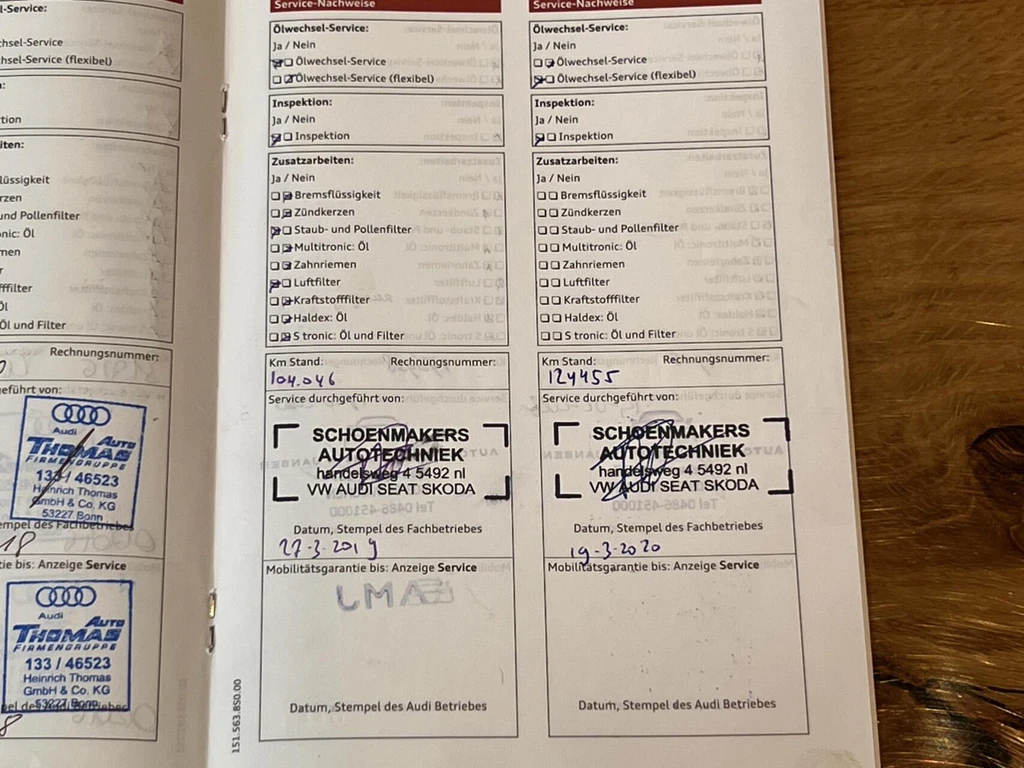 l-Service:
hsel-Service
chsel-Service (flexibel)
tion
iten:
lüssigkeit
rzen
und Pollenfilter
nic: Öl
men
r
fffilter
Öl
Öl und Filter
Rechnungsnummer:
geführt von:
Audi
Auto
THOMAS
FIRMENGRUPPE
133/46523
Heinrich Thomas
GmbH & Co. KG
53227 Bonn
empel des Fachbetriebes
18
tie bis: Anzeige Service
Audi
Auto
THOMAS
FIRMENGRUPPE
133 / 46523
Heinrich Thomas
GmbH & Co. KG
53227 Bonn
pel des Audi Betriebes
8
151.563.8S0.00
Service-Nachweise
Ölwechsel-Service:
Ja / Nein
Ölwechsel-Service
Ölwechsel-Service (flexibel)
Inspektion:
Ja / Nein
Inspektion
Zusatzarbeiten:
Ja / Nein
Bremsflüssigkeit
Zündkerzen
Staub- und Pollenfilter
Multitronic: Öl
Zahnriemen
Luftfilter
Kraftstofffilter
Haldex: Öl
S tronic: Öl und Filter
Km Stand: Rechnungsnummer:
104.046
Service durchgeführt von:
SCHOENMAKERS
AUTOTECHNIEK
handelsweg 4 5492 nl
VW AUDI SEAT SKODA
Datum, Stempel des Fachbetriebes
27-3-2019
Mobilitätsgarantie bis: Anzeige Service
Datum, Stempel des Audi Betriebes
Service-Nachweise
Ölwechsel-Service:
Ja / Nein
Ölwechsel-Service
Ölwechsel-Service (flexibel)
Inspektion:
Ja / Nein
Inspektion
Zusatzarbeiten:
Ja / Nein
Bremsflüssigkeit
Zündkerzen
Staub- und Pollenfilter
Multitronic: Öl
Zahnriemen
Luftfilter
Kraftstofffilter
Haldex: Öl
S tronic: Öl und Filter
Km Stand: Rechnungsnummer:
124455
Service durchgeführt von:
SCHOENMAKERS
AUTOTECHNIEK
handelsweg 4 5492 nl
VW AUDI SEAT SKODA
Datum, Stempel des Fachbetriebes
19-3-2020
Mobilitätsgarantie bis: Anzeige Service
Datum, Stempel des Audi Betriebes